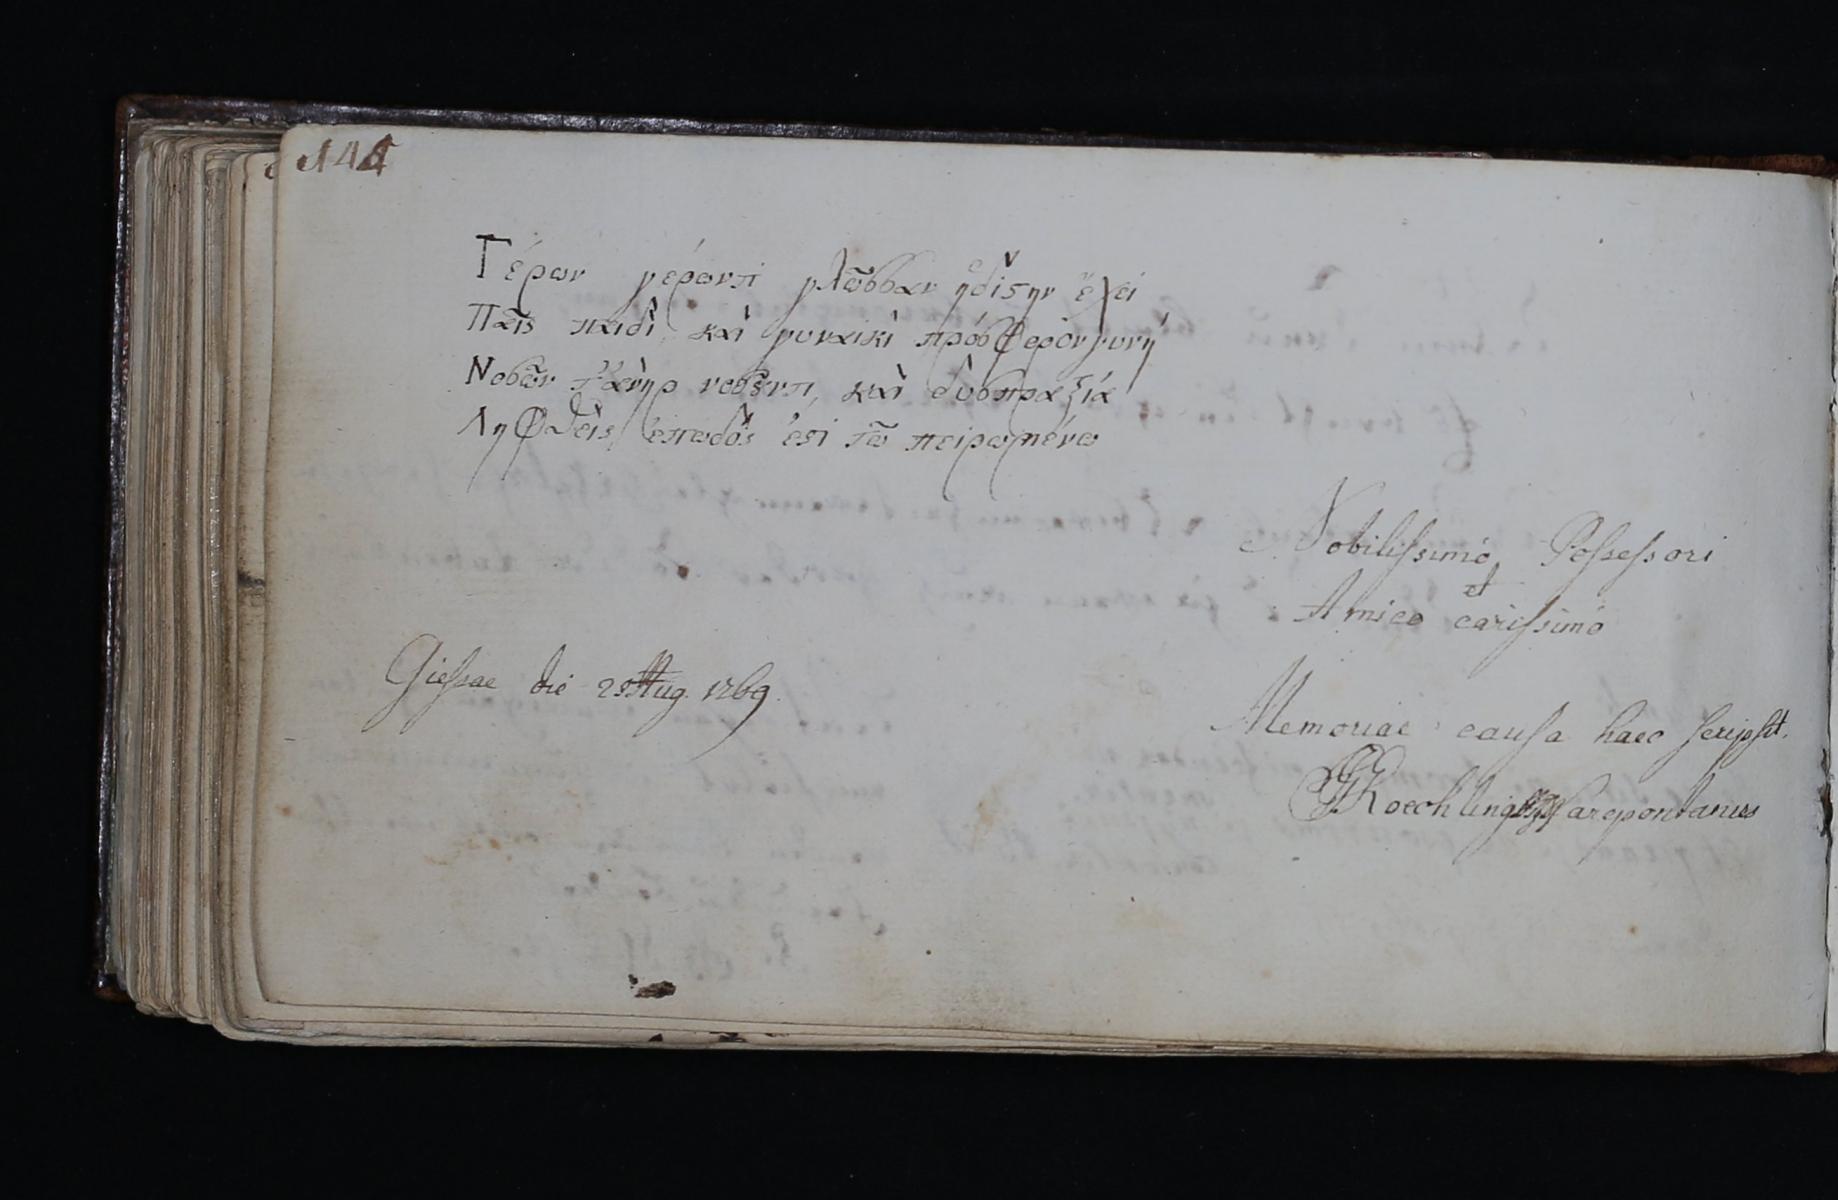 144
Γέρων γέροντι γλῶσσαν ἡδίστην ἔχει
Παῖς παιδὶ, καὶ γυναικὶ πρόσφερον γυνή
Νοσῶν τ' ἀνὴρ νοσοῦντι, καὶ δυσπραξία
Ληφθεὶς ἐπωδός ἐστι τῶ πειρωμένω
Nobilissimo Possessori
et
Amico carissimo
Giessae die 25 Aug. 1769.
Memoriae causa haec scripsit.
Koechling Marepontanus